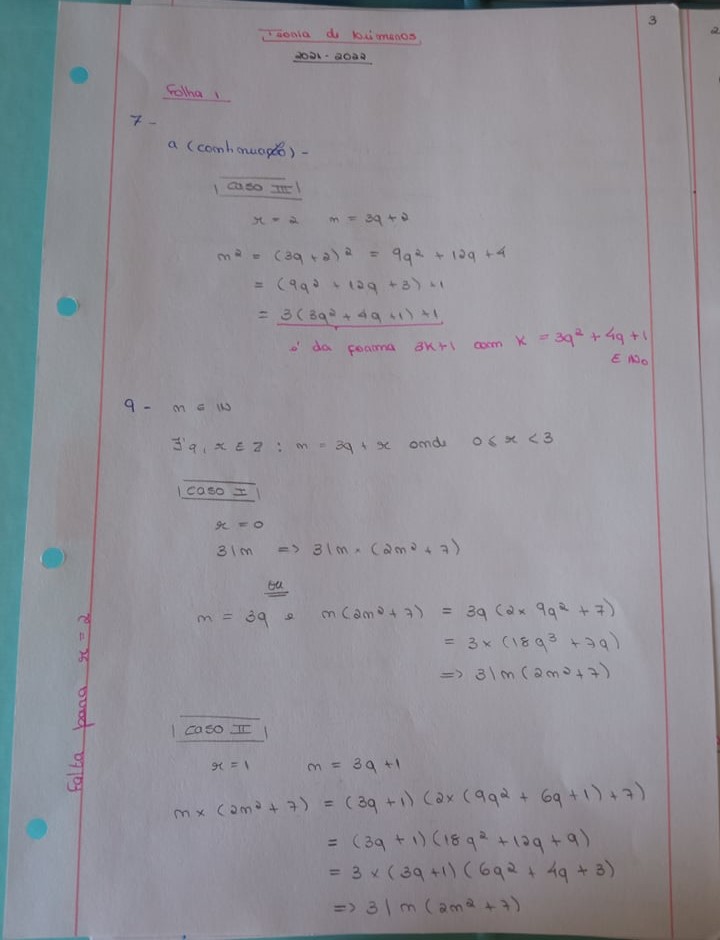 3
Teoria de Números
2021-2022
Folha 1
7 -
a (continuação) -
Caso III
r = 2 n = 3q + 2
n² = (3q + 2)² = 9q² + 12q + 4
= (9q² + 12q + 3) + 1
= 3(3q² + 4q + 1) + 1
é da forma 3K+1 com K = 3q² + 4q + 1
∈ N₀
9 - n ∈ IN
∃ q, r ∈ Z : n = 3q + r onde 0 ≤ r < 3
Caso I
r = 0
3|n => 3|n × (2n² + 7)
ou
n = 3q e n(2n² + 7) = 3q (2 × 9q² + 7)
= 3 × (18q³ + 7q)
=> 3|n(2n² + 7)
Caso II
r = 1 n = 3q + 1
n × (2n² + 7) = (3q + 1)(2 × (9q² + 6q + 1) + 7)
= (3q + 1)(18q² + 12q + 9)
= 3 × (3q + 1)(6q² + 4q + 3)
=> 3|n(2n² + 7)
Falta para r = 2
2